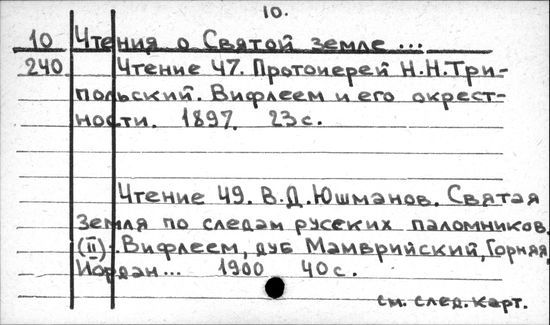 10.
10 Чтения о Святой земле ...
240 Чтение 47. Протоиерей Н.Н.Три-
польский. Вифлеем и его окрест-
ности. 1897. 23 с.
Чтение 49. В.Д.Юшманов. Святая
Земля по следам русских паломников.
(II). Вифлеем, дуб Мамврийский, Горняя,
Иордан... 1900 40 с.
см. след. карт.